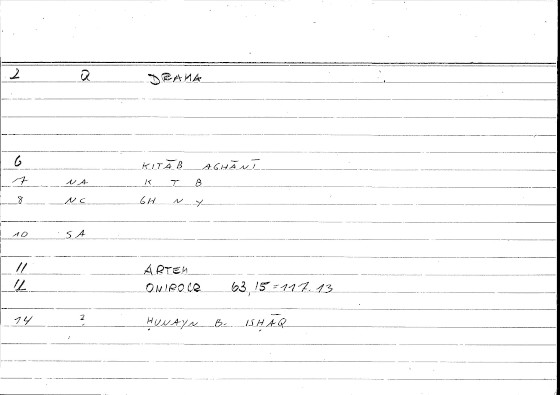 2 Q DRAMA
6 KITĀB AGHĀNĪ
7 NA K T B
8 NC GH N Y
10 SA
11 ARTEM
12 ONIROCR 63,15=117.13
14 2 ḤUNAYN B. ISḤĀQ